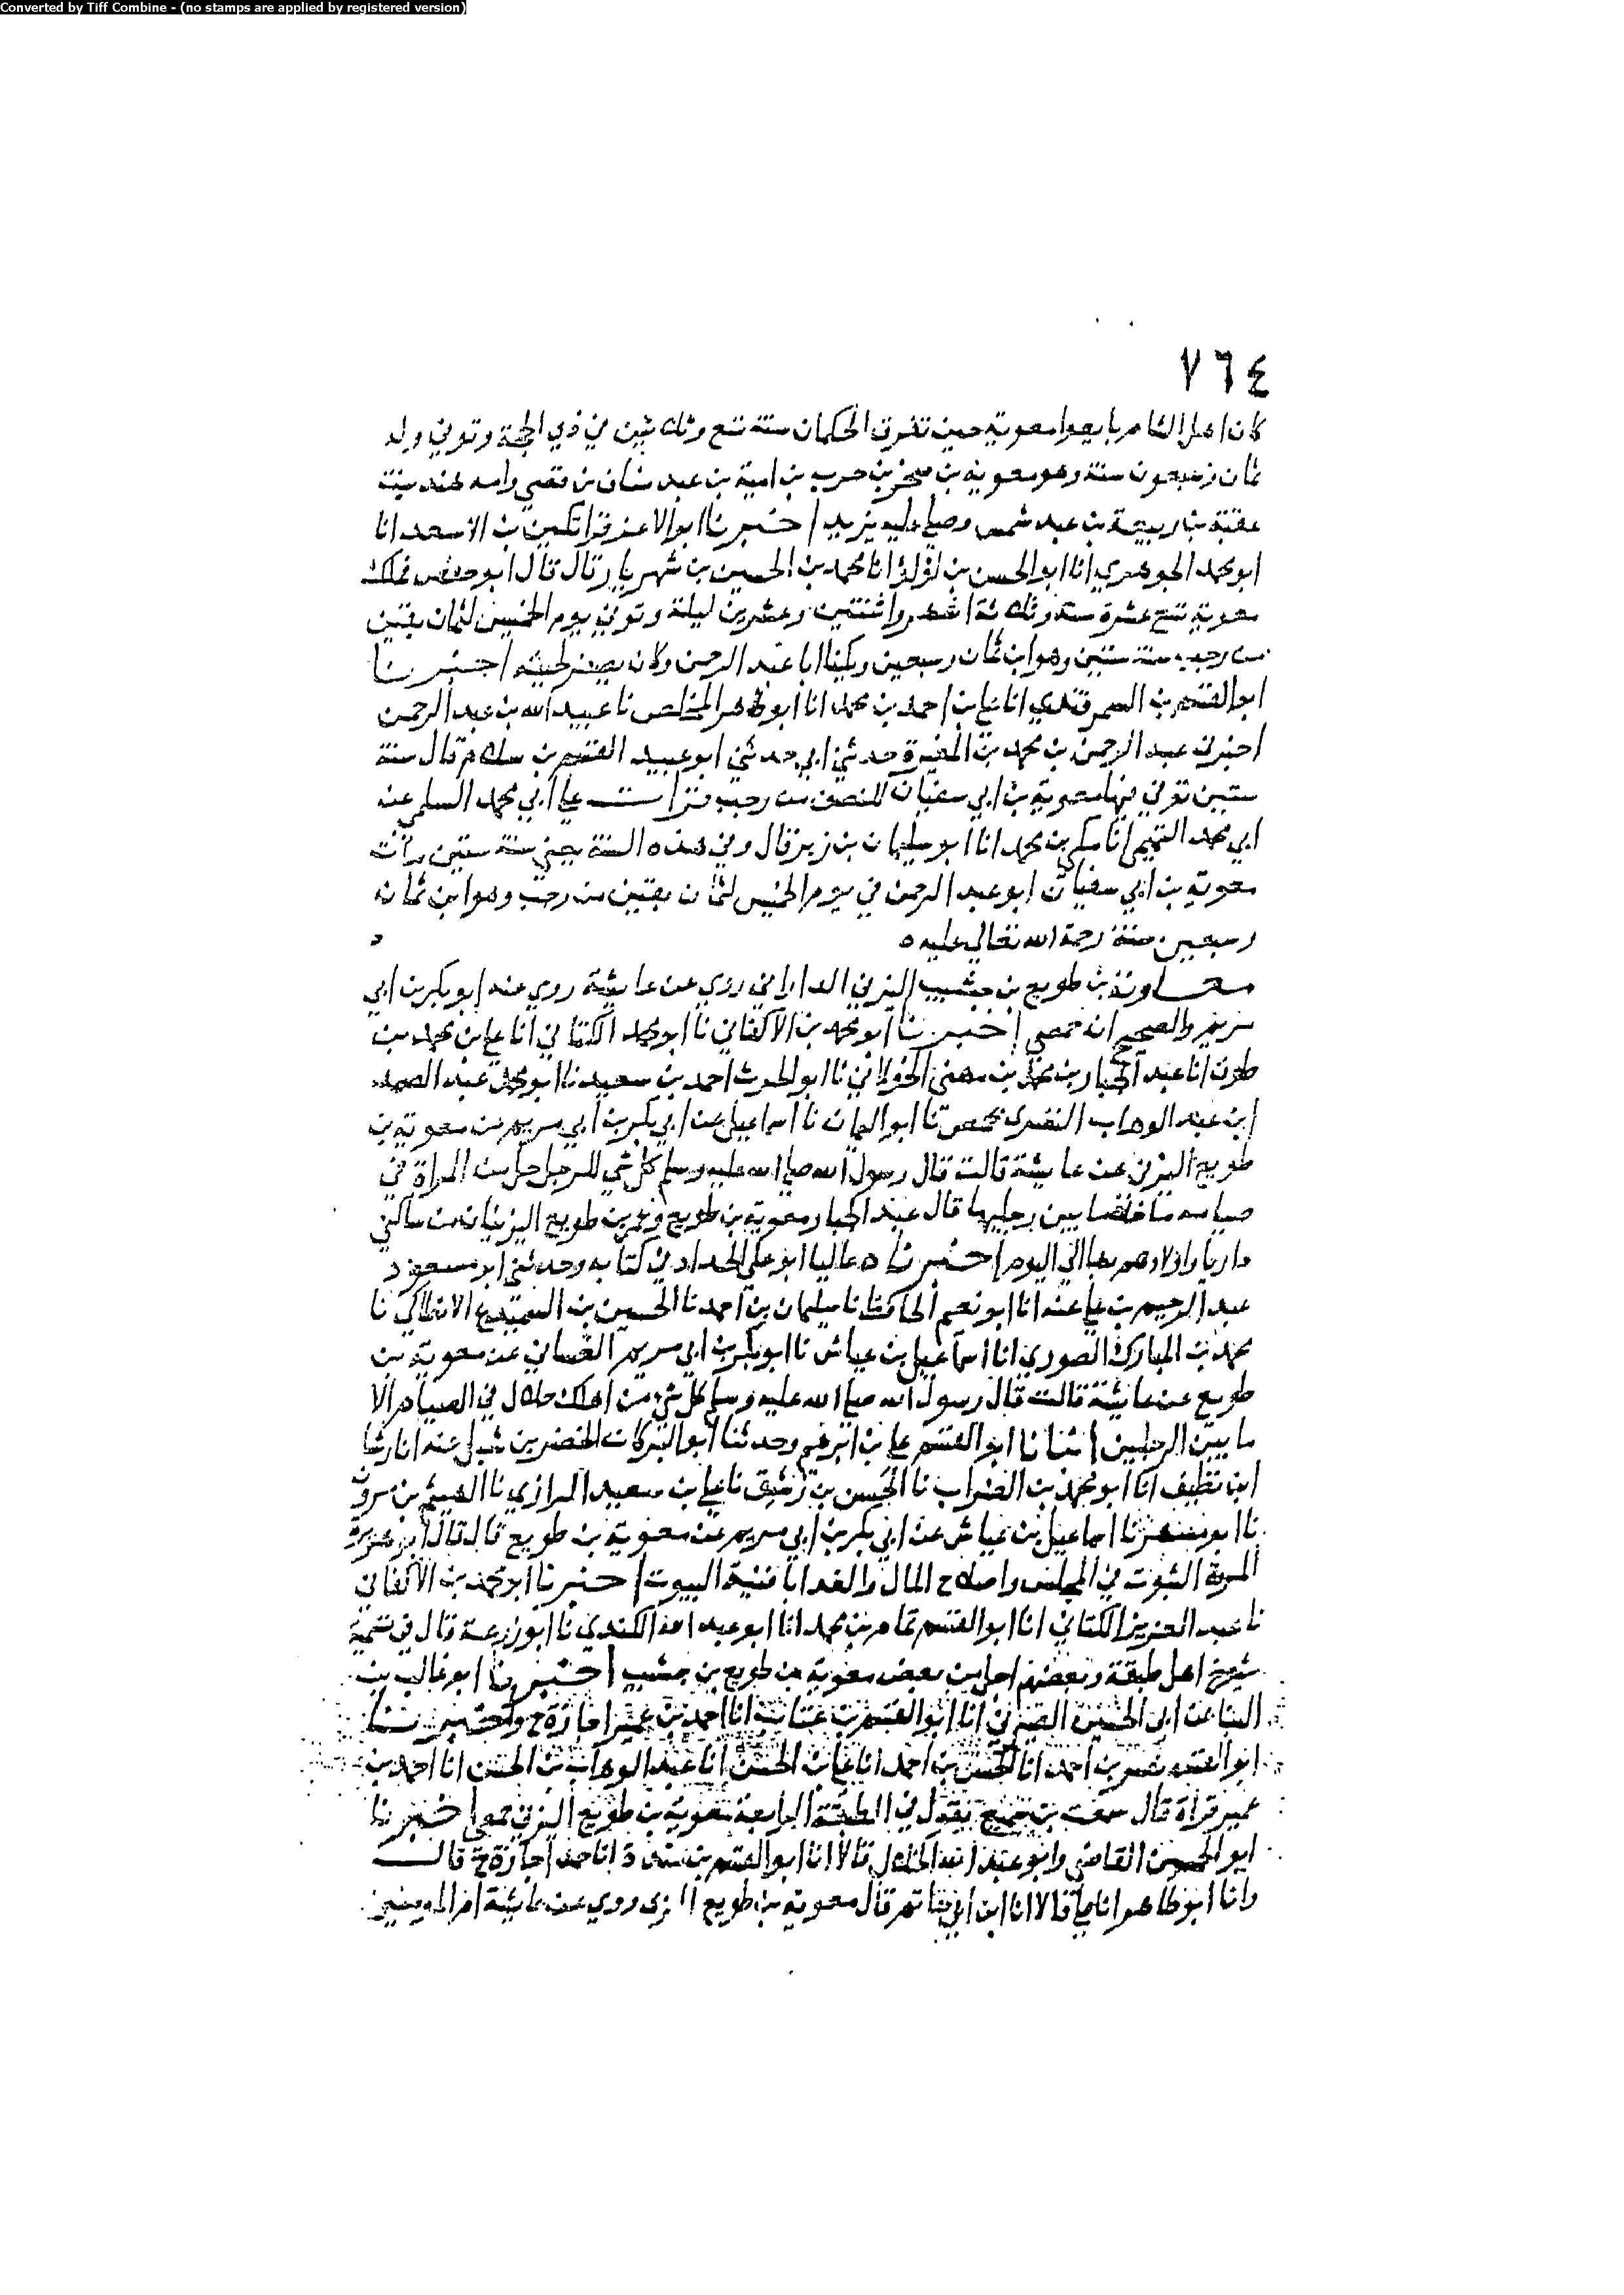 Converted by Tiff Combine - (no stamps are applied by registered version)
٧٦٤
كان اهل الشام بايعوا معوية حين تفرق الحكمان سنة تسع وثلاثين في ذي الحجة وتوفي وله
ثمان وسبعون سنة وهو معوية بن صخر بن حرب بن امية بن عبد شمس بن قصي وامه هند بنت
عقبة بن ربيعة بن عبد شمس وصلى عليه يزيد اخبرنا ابو الاعز قراتكين بن الاسعد انا
ابو محمد الجوهري انا ابو الحسن بن لؤلؤ انا محمد بن الحسين بن شهريار قال قال ابو حفص فملك
معوية تسع عشرة سنة وثلاثة اشهر واثنتين وعشرين ليلة وتوفي يوم الخميس لثمان بقين
من رجب سنة ستين وهو ابن ثمان وسبعين ويكنا ابا عبد الرحمن وكان يصفر لحيته اخبرنا
ابو القسم بن السمرقندي انا علي بن احمد بن محمد انا ابو طاهر المخلص نا عبيد الله بن عبد الرحمن
اخبرني عبد الرحمن بن محمد بن المغيرة حدثني ابي حدثني ابو عبيد القسم بن سلام قال سنة
ستين توفي فيها معوية بن ابي سفيان للنصف من رجب قرأت على ابي محمد السلمي عن
ابي محمد التميمي انا مكي بن محمد انا ابو سليمان بن زبر قال وفي هذه السنة يعني سنة ستين مات
معوية بن ابي سفيان ابو عبد الرحمن في يوم الخميس لثمان بقين من رجب وهو ابن ثمان
وسبعين سنة رحمة الله تعالى عليه ٥
معاوية بن طويع بن جشيب اليزني الداراني روى عن عايشة روى عنه ابو بكر بن ابي
مريم والصحيح انه حمصي اخبرنا ابو محمد بن الاكفاني نا ابو محمد الكتاني انا علي بن محمد بن
طوق انا عبد الجبار بن محمد بن مهنى الخولاني نا ابو الحرث احمد بن سعيد نا ابو محمد عبد الصمد
ابن عبد الوهاب النصري بحمص نا ابو اليمان نا اسماعيل عن ابي بكر بن ابي مريم عن معوية بن
طويع اليزني عن عايشة قالت قال رسول الله صلى الله عليه وسلم كل شي للرجل حل من المراة في
صيامه ما خلا ما بين رجليها قال عبد الجبار معوية بن طويع ونمر بن طويع اليزنيان من ساكني
داريا واولادهم بها الى اليوم اخبرناه عاليا ابو علي الحداد في كتابه وحدثني ابو مسعود
عبد الرحيم بن علي عنه انا ابو نعيم الحافظ نا سليمان بن احمد نا الحسين بن السميدع الانطاكي نا
محمد بن المبارك الصوري انا اسماعيل بن عياش نا ابو بكر بن ابي مريم الغساني عن معوية بن
طويع عن عايشة قالت قال رسول الله صلى الله عليه وسلم كل شي من اهلك حلال في الصيام الا
ما بين الرجلين انبانا ابو القسم علي بن ابرهيم وحدثنا ابو البركات الخضر بن شبل عنه انا رشا
ابن نظيف انا ابو محمد بن الضراب نا الحسن بن رشيق نا علي بن سعيد الرازي نا الهيثم بن مروان
نا ابو مسهر نا اسماعيل بن عياش عن ابي بكر بن ابي مريم عن معوية بن طويع قال قال ابو هريرة
المروة الثبوت في المجلس واصلاح المال والغدا بافنية البيوت اخبرنا ابو محمد بن الاكفاني
نا عبد العزيز الكتاني انا ابو القسم تمام بن محمد انا ابو عبد الله الكندي نا ابو زرعة قال في تسمية
شيوخ اهل طبقة وبعضهم اجل من بعض معوية بن طويع بن جشيب اخبرنا ابو غالب بن
البنا عن ابي الحسين الصيرفي انا ابو القسم بن عتاب انا احمد بن عمير اجازة ح واخبرنا
ابو القسم نصر بن احمد انا الحسن بن احمد انا علي بن الحسن انا عبد الوهاب بن الحسن انا احمد بن
عمير قراة قال سمعت بن سميع يقول في الطبقة الرابعة معوية بن طويع اليزني حمصي اخبرنا
ابو الحسين القاضي وابو عبد الله الخلال قالا انا ابو القسم بن مندة انا حمد اجازة ح قال
وانا ابو طاهر انا علي قالا انا ابن ابي حاتم قال معوية بن طويع اليزني روى عن عايشة ام المومنين